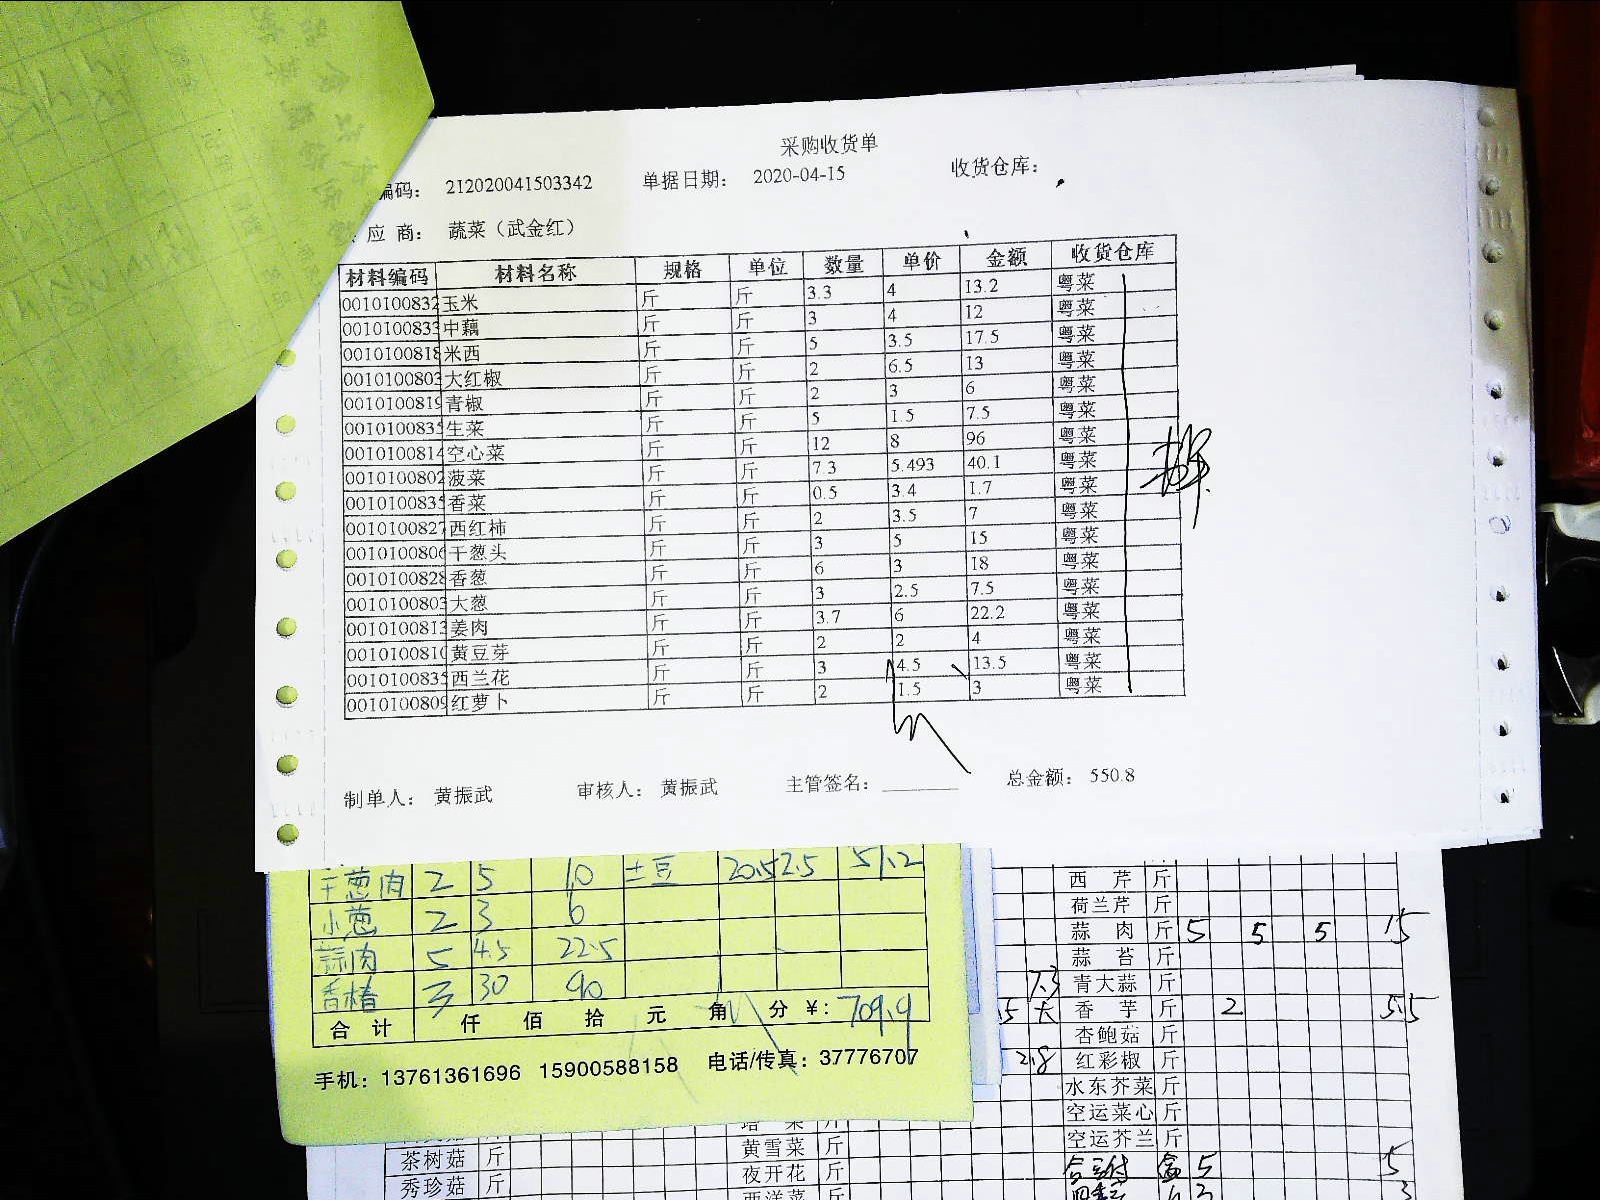 采购收货单
编码： 212020041503342 单据日期： 2020-04-15 收货仓库：
应 商： 蔬菜（武金红）
材料编码 材料名称 规格 单位 数量 单价 金额 收货仓库
0010100832 玉米 斤 斤 3.3 4 13.2 粤菜
0010100833 中藕 斤 斤 3 4 12 粤菜
0010100818 米西 斤 斤 5 3.5 17.5 粤菜
0010100803 大红椒 斤 斤 2 6.5 13 粤菜
0010100819 青椒 斤 斤 2 3 6 粤菜
0010100835 生菜 斤 斤 5 1.5 7.5 粤菜
0010100814 空心菜 斤 斤 12 8 96 粤菜
0010100802 菠菜 斤 斤 7.3 5.493 40.1 粤菜
0010100835 香菜 斤 斤 0.5 3.4 1.7 粤菜
0010100827 西红柿 斤 斤 2 3.5 7 粤菜
0010100806 干葱头 斤 斤 3 5 15 粤菜
0010100828 香葱 斤 斤 6 3 18 粤菜
0010100803 大葱 斤 斤 3 2.5 7.5 粤菜
0010100813 姜肉 斤 斤 3.7 6 22.2 粤菜
0010100810 黄豆芽 斤 斤 2 2 4 粤菜
0010100835 西兰花 斤 斤 3 4.5 13.5 粤菜
0010100809 红萝卜 斤 斤 2 1.5 3 粤菜
制单人： 黄振武 审核人： 黄振武 主管签名： 总金额： 550.8
干葱肉 2 5 10 土豆 20.5 2.5 51.2
小葱 2 3 6
蒜肉 5 4.5 22.5
香椿 3 30 90
合 计 仟 佰 拾 元 角 分 ¥: 709.9
手机：13761361696 15900588158 电话/传真：37776707
西 芹 斤
荷兰芹 斤
蒜 肉 斤 5 5 5 15
蒜 苔 斤
7.3 青大蒜 斤
香 芋 斤 2 5.5
杏鲍菇 斤
2.8 红彩椒 斤
水东芥菜 斤
空运菜心 斤
空运芥兰 斤
茶树菇 斤 黄雪菜 斤
秀珍菇 斤 夜开花 斤
西洋菜 斤